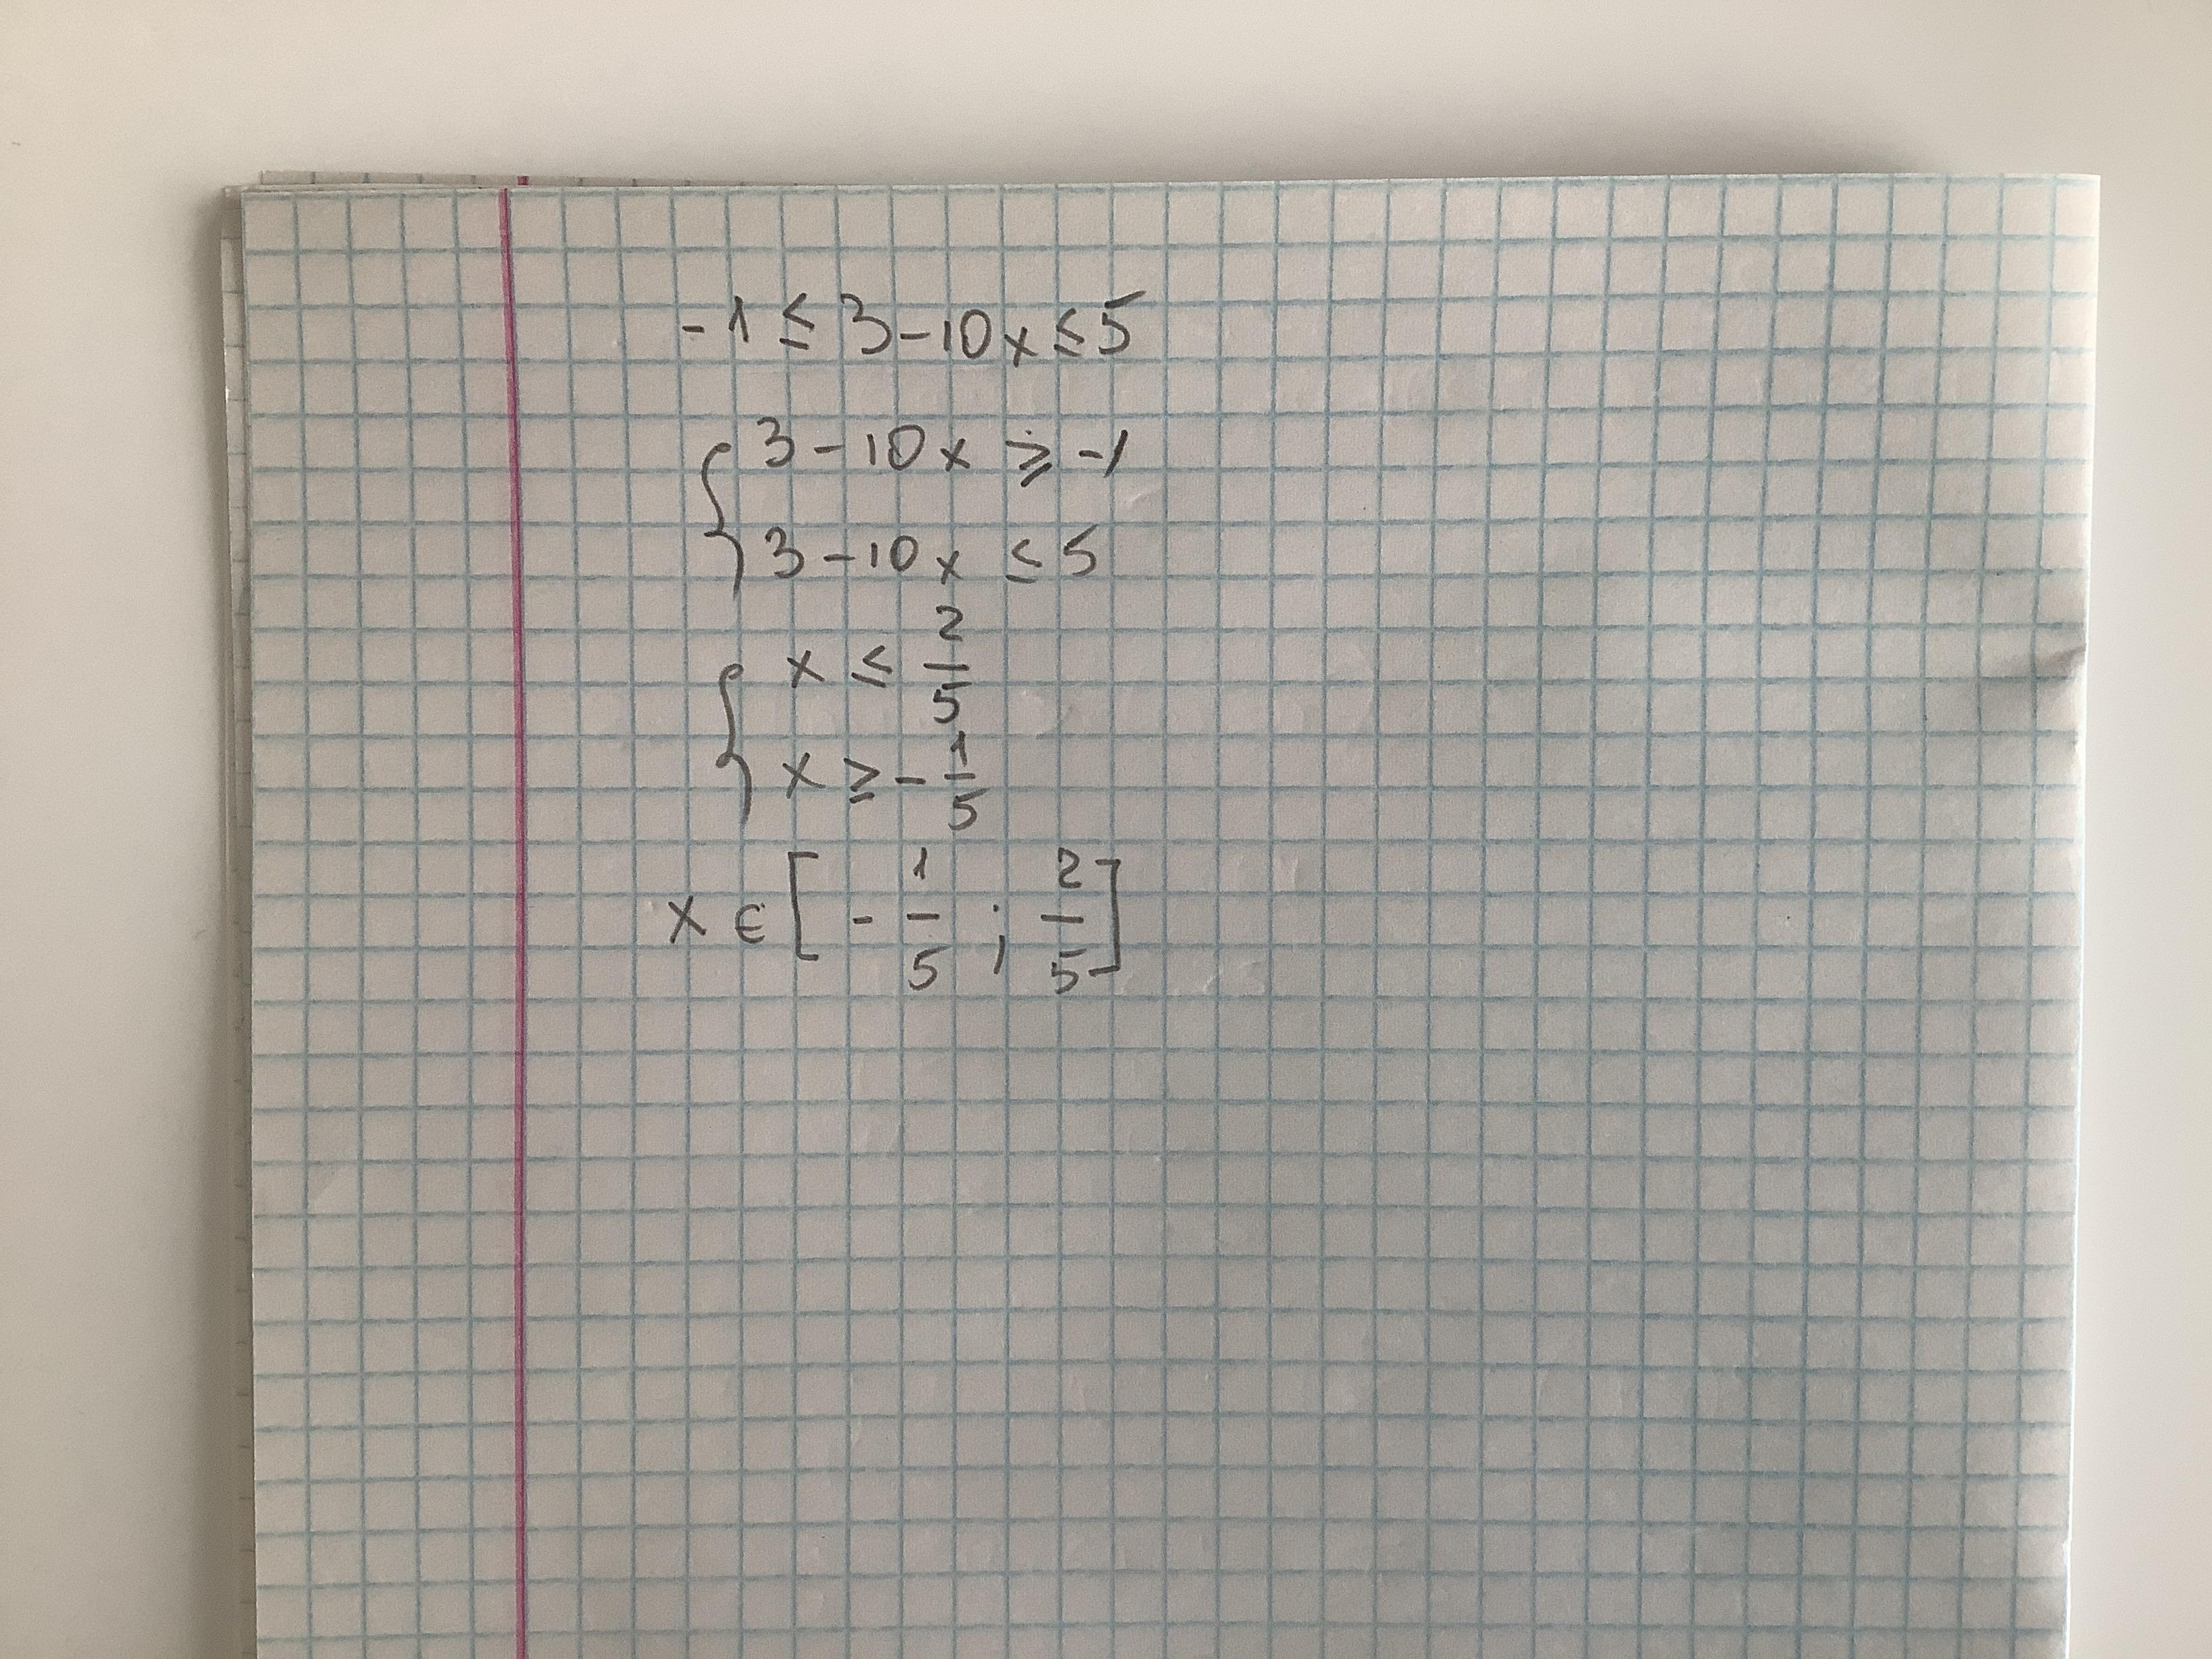 -1 ≤ 3-10x ≤ 5
{ 3-10x ≥ -1
3-10x ≤ 5
{ x ≤ 2/5
x ≥ -1/5
x ∈ [-1/5 ; 2/5]